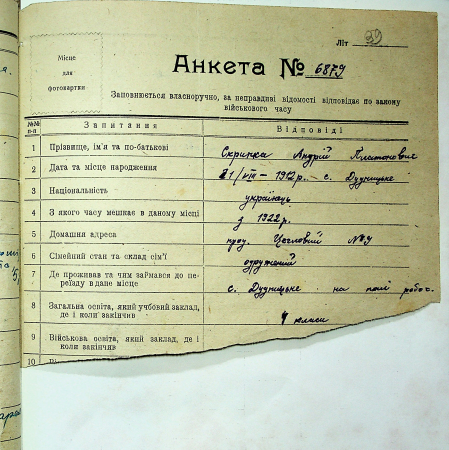 Літ 29
Місце
для
фотокартки
Анкета № 6879
Заповнюється власноручно, за неправдиві відомості відповідає по закону
військового часу
№№ п-п Запитання Відповіді
1 Прізвище, ім'я та по-батькові Скрипка Андрій Платонович
2 Дата та місце народження 21/VIII – 1912 р. с. Дудницьке
3 Національність українець
4 З якого часу мешкає в даному місці з 1922 р.
5 Домашня адреса Цегловий №9
6 Сімейний стан та склад сім'ї одружений
7 Де проживав та чим займався до пе-
реїзду в дане місце с. Дудницьке на полі робот.
8 Загальна освіта, який учбовий заклад,
де і коли закінчив 4 класи
9 Військова освіта, який заклад, де і
коли закінчив
10